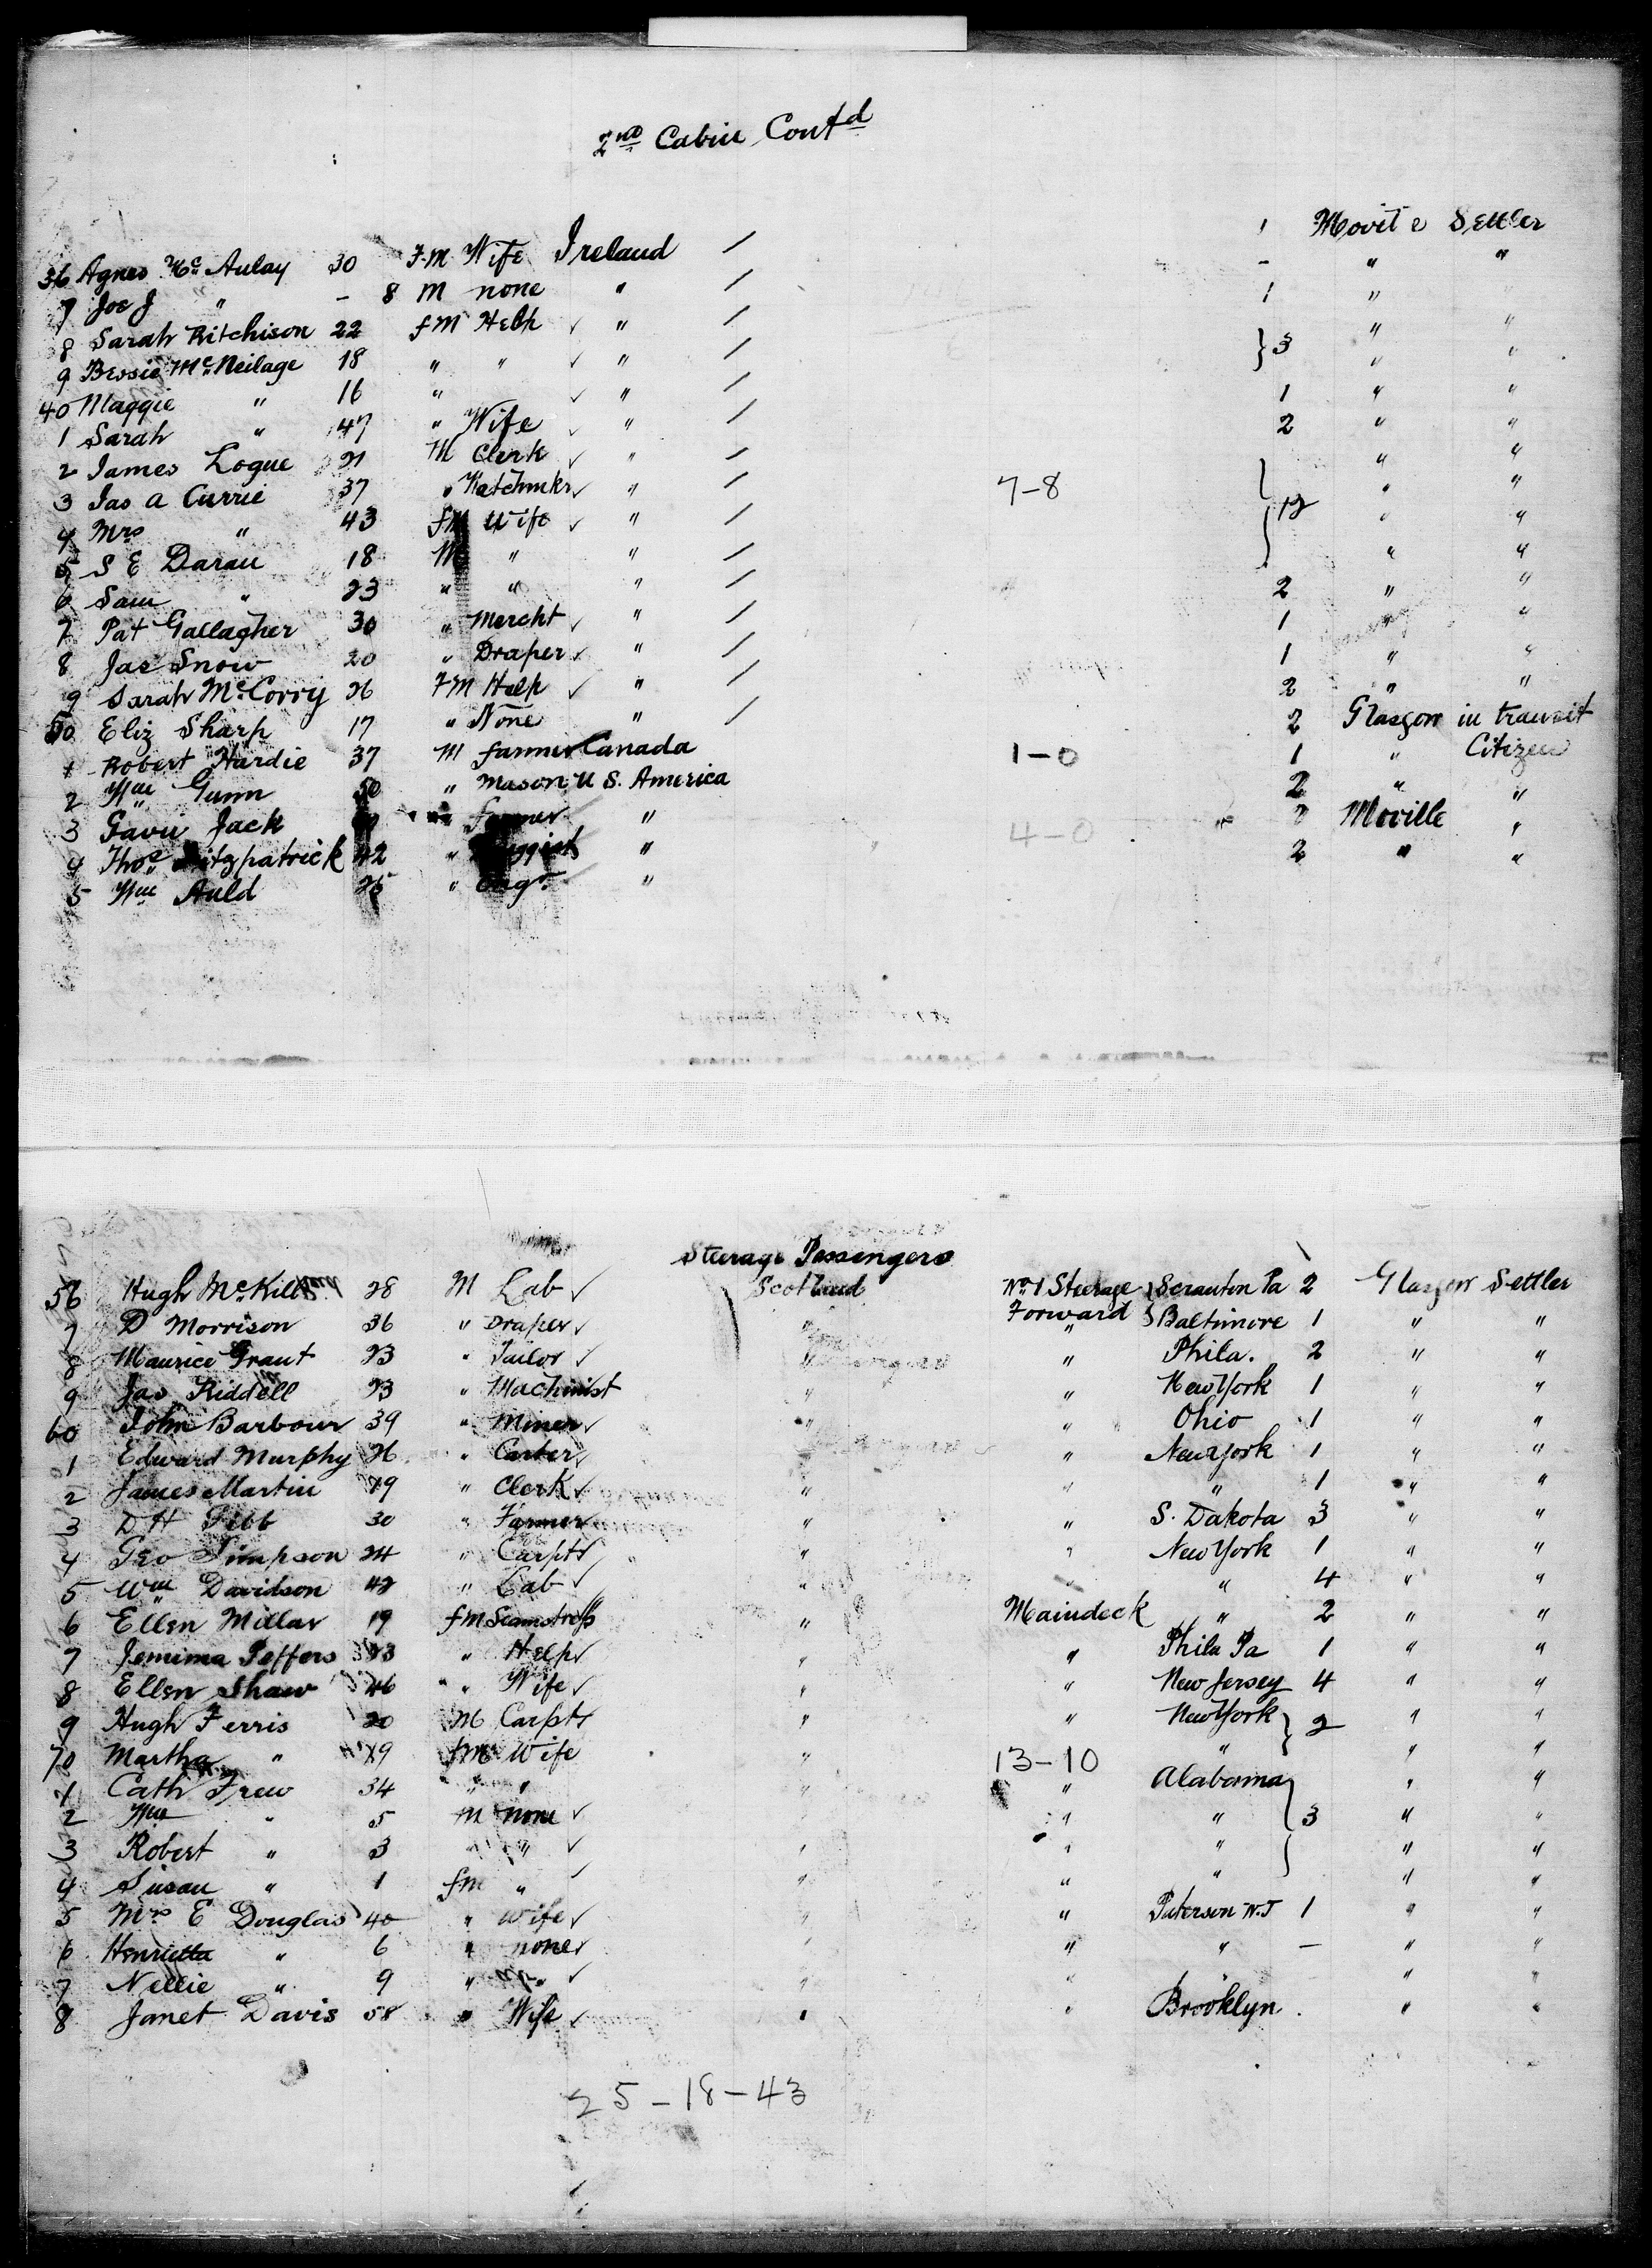 2nd Cabin Contd
36 Agnes McAulay 30 F.M Wife Ireland / 1 Movile Settler
7 Jos J " - 8 M none " / - " "
8 Sarah Ritchison 22 fM Help ✓ " / 1 " "
9 Bessie McNeilage 18 " " ✓ " / } 3 " "
40 Maggie " 16 " ✓ " / " "
1 Sarah " 47 " Wife ✓ " / 1 " "
2 James Logue 21 M Clerk ✓ " / 2 " "
3 Jas A Currie 37 " Watchmkr ✓ " / " "
4 Mrs " 43 fM Wife ✓ " / 7-8 } 12 " "
5 S E Darau 18 M " " / " "
6 Sam " 23 " " " / " "
7 Pat Gallagher 30 " Mercht ✓ " / 2 " "
8 Jas Snow 20 " Draper ✓ " / 1 " "
9 Sarah McCorry 26 FM Help ✓ " / 1 " "
50 Eliz Sharp 17 " None " / 2 " "
1 Robert Hardie 37 M farmer Canada 2 Glasgow in transit
2 Wm Gunn 50 " Mason U S. America 1-0 1 " Citizen
3 Gavin Jack farmer " 2 " "
4 Thos Fitzpatrick 42 " " 4-0 Moville "
5 Wm Auld 25 " Engr " 2 " "
Steerage Passengers
56 Hugh McKill 28 M Lab ✓ Scotland No 1 Steerage } Scranton Pa 2 Glasgow Settler
7 D Morrison 36 " Draper ✓ " Forward } Baltimore 1 " "
8 Maurice Grant 23 " Tailor ✓ " " Phila. 2 " "
9 Jas Riddell 23 " Machinist " " New York 1 " "
60 John Barbour 39 " Miner ✓ " " Ohio 1 " "
1 Edward Murphy 26 " Carter ✓ " " New York 1 " "
2 James Martin 19 " Clerk ✓ " " " 1 " "
3 D H Tebb 30 " Farmer " " S. Dakota 3 " "
4 Geo Simpson 24 " Carptr " " New York 1 " "
5 Wm Davidson 42 " Lab ✓ " " " 4 " "
6 Ellen Millar 19 fM Seamstress " Maindeck " 2 " "
7 Jemima Peffers 23 " Help ✓ " " Phila Pa 1 " "
8 Ellen Shaw 46 " Wife ✓ " " New Jersey 4 " "
9 Hugh Ferris 20 M Carptr " " New York } 2 " "
70 Martha " 19 fM Wife " 13-10 " " "
1 Cath Frew 34 " " " " Alabama } 3 " "
2 Wm " 5 M none ✓ " " " " "
3 Robert " 3 " " ✓ " " " " "
4 Susan " 1 fm " ✓ " " " " "
5 Mrs E Douglas 40 " Wife ✓ " " Paterson N.J 1 " "
6 Henrietta " 6 " none ✓ " " " — " "
7 Nellie " 9 " " ✓ " " " " "
8 Janet Davis 58 " Wife ✓ " " Brooklyn " "
25-18-43